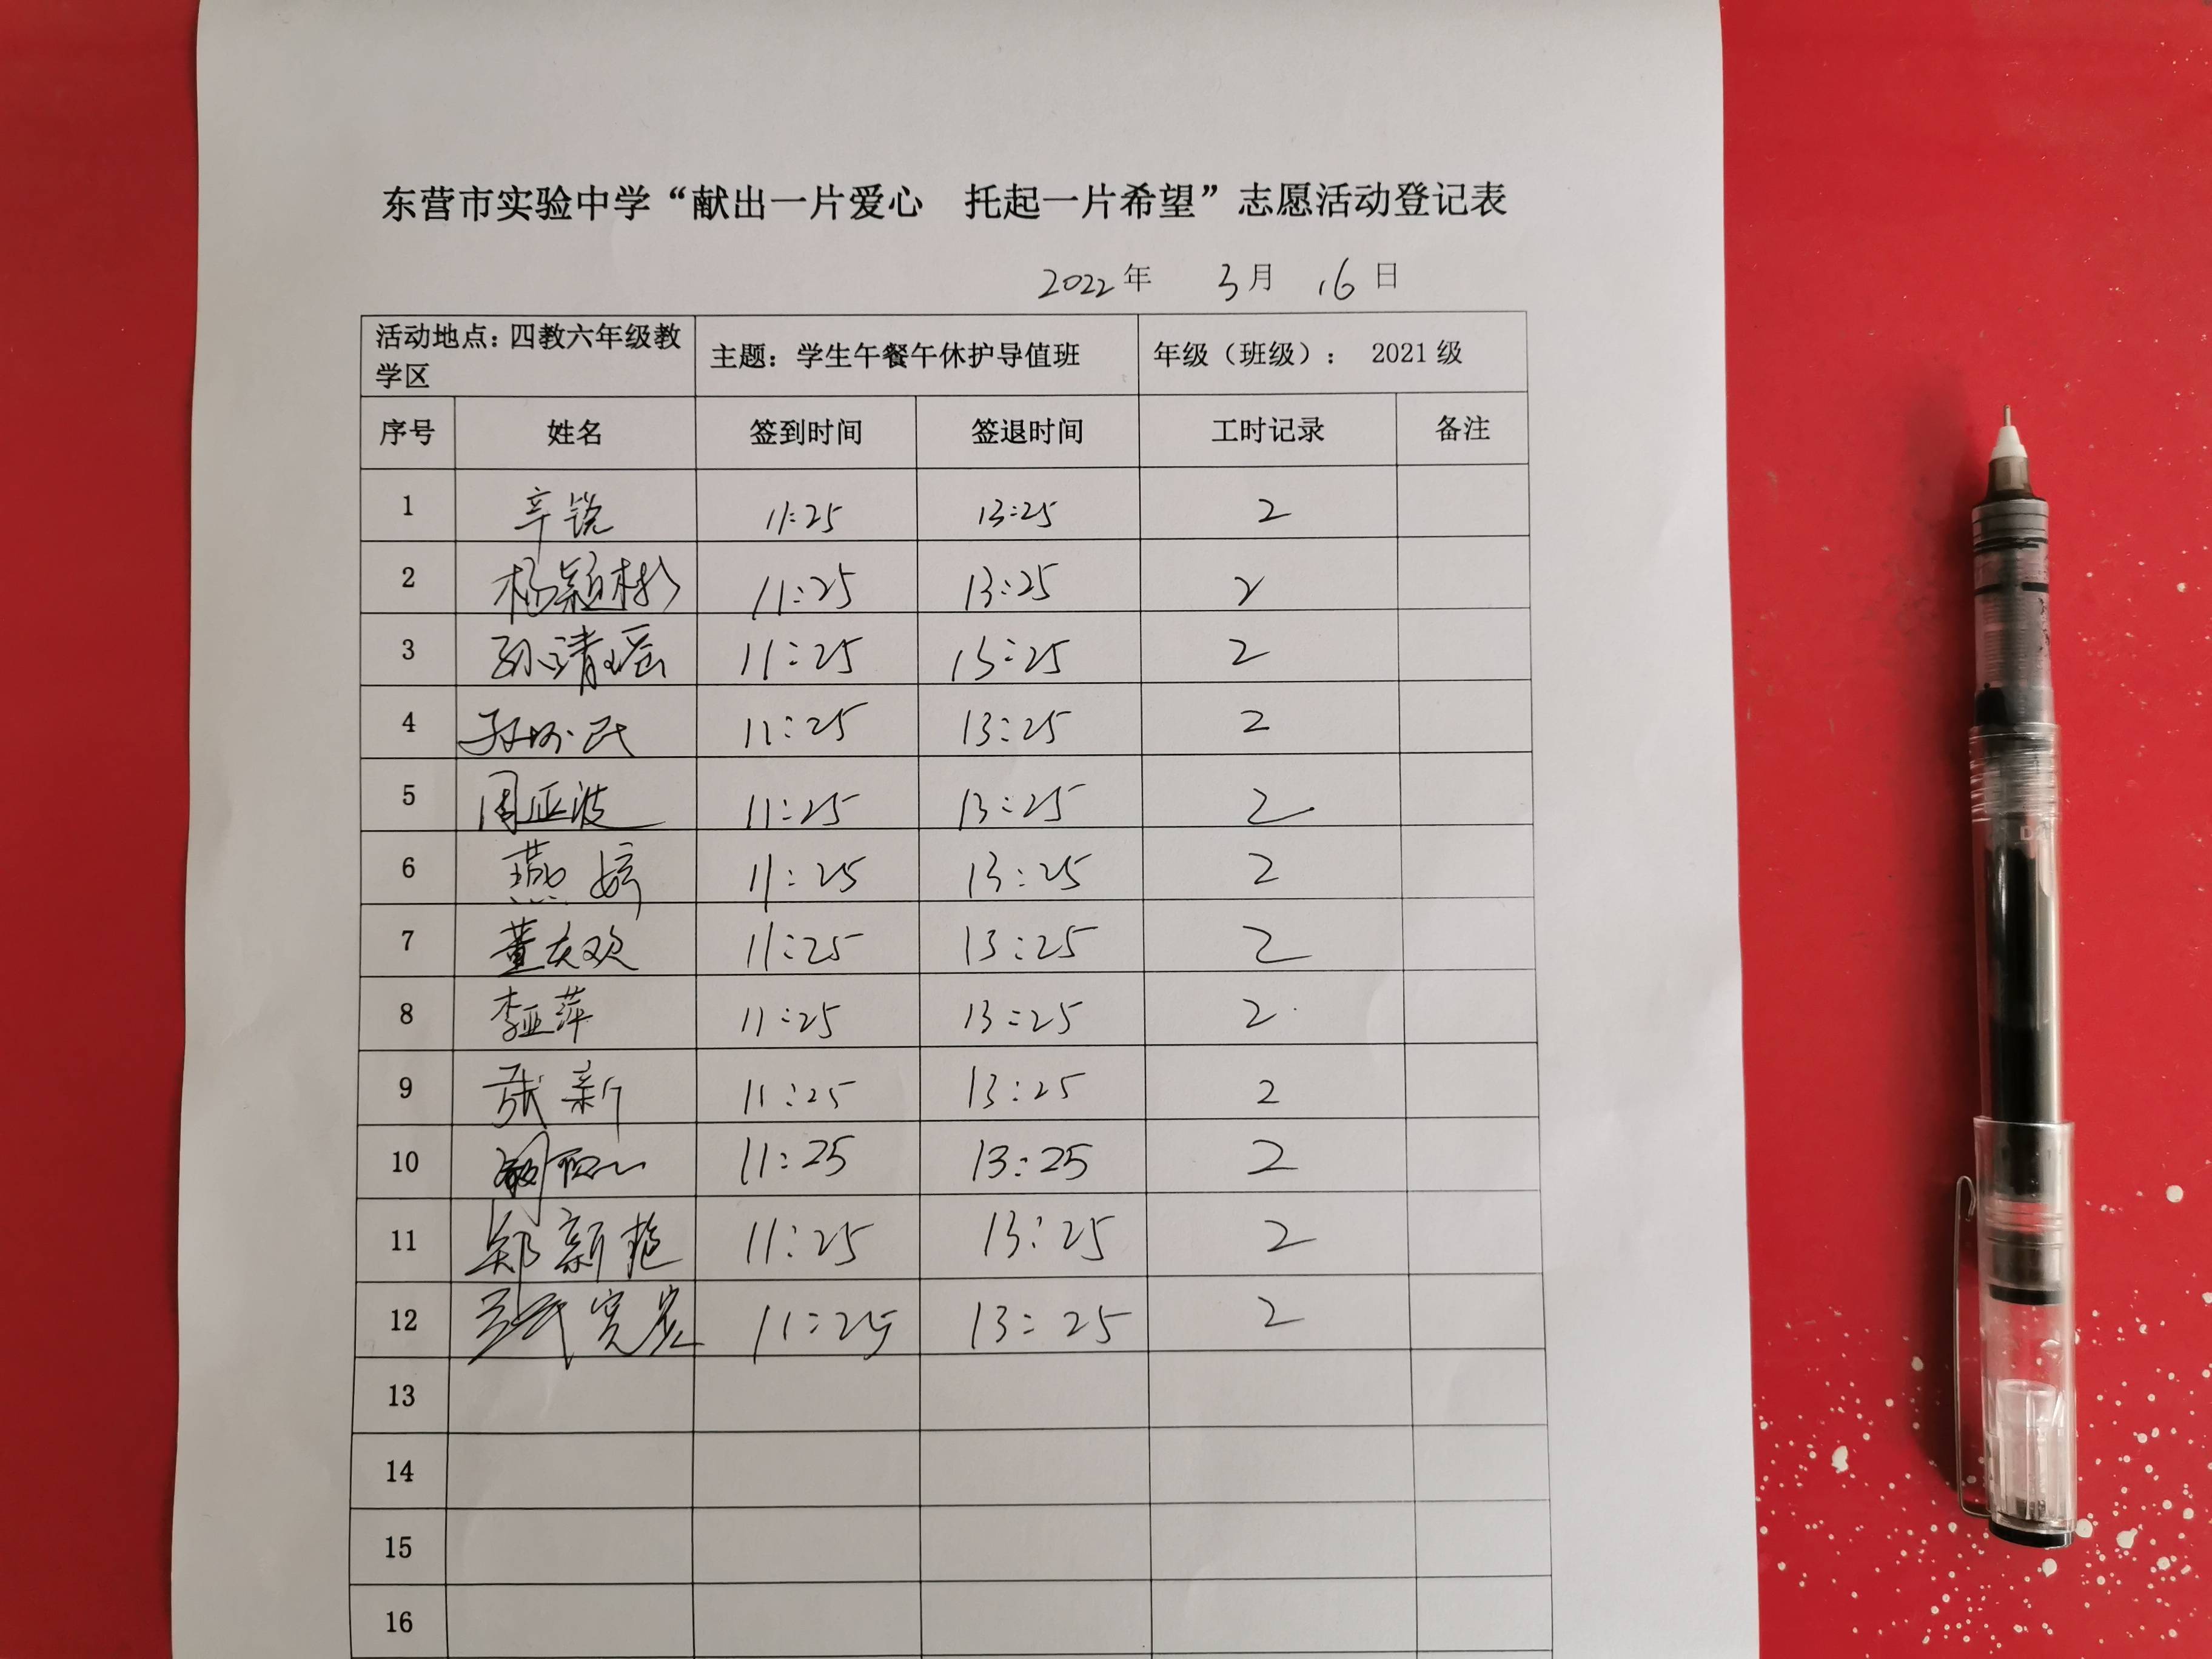 东营市实验中学“献出一片爱心 托起一片希望”志愿活动登记表
2022年 3月 16日
活动地点：四教六年级教学区 主题：学生午餐午休护导值班 年级（班级）： 2021级
序号 姓名 签到时间 签退时间 工时记录 备注
1 辛锐 11:25 13:25 2
2 杨颖彬 11:25 13:25 2
3 孙清瑶 11:25 13:25 2
4 11:25 13:25 2
5 周亚波 11:25 13:25 2
6 燕婷 11:25 13:25 2
7 董友欢 11:25 13:25 2
8 李亚萍 11:25 13:25 2
9 张新 11:25 13:25 2
10 11:25 13:25 2
11 郑新艳 11:25 13:25 2
12 11:25 13:25 2
13
14
15
16